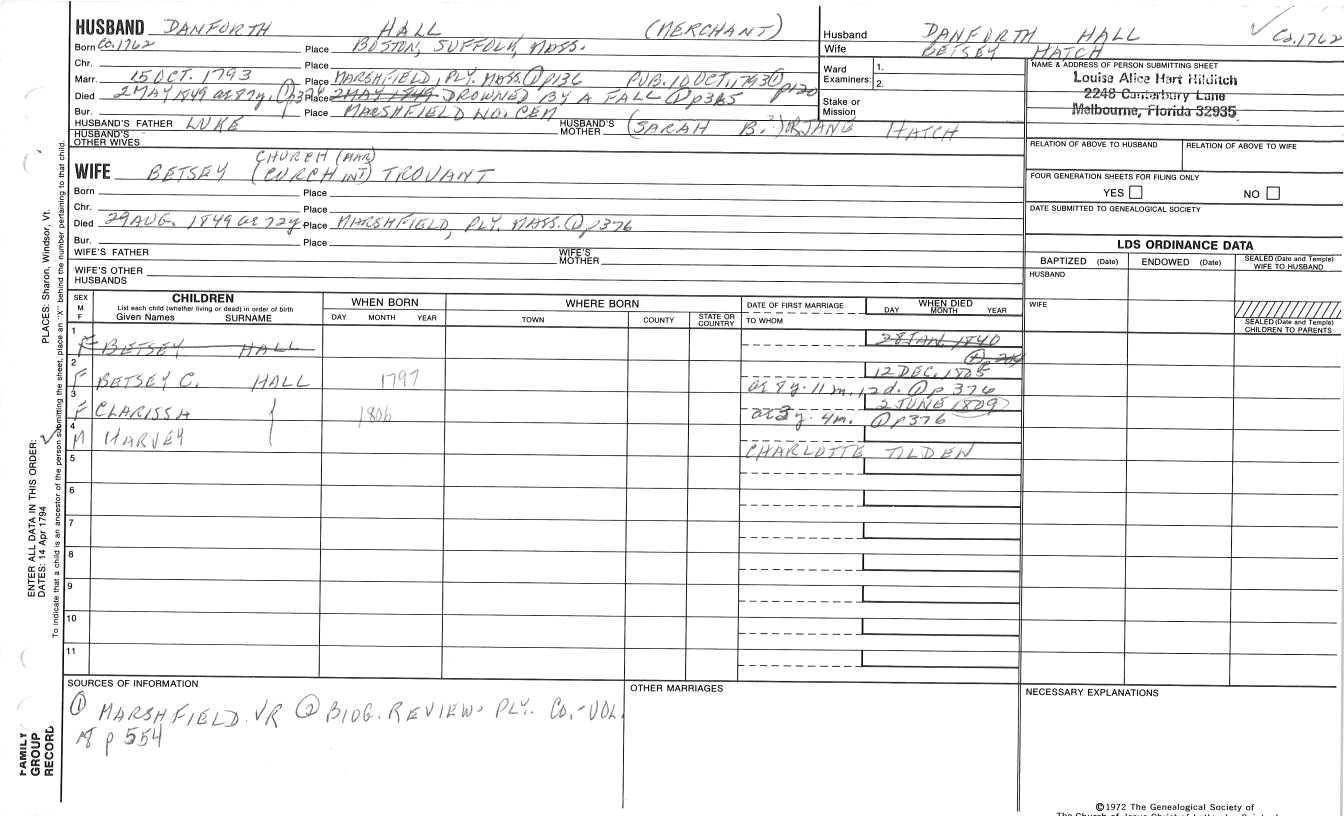 HUSBAND DANFORTH HALL (MERCHANT)
Born Ca. 1762 Place BOSTON, SUFFOLK, MASS.
Chr. Place
Marr. 15 OCT. 1793 Place MARSHFIELD, PLY. MASS. ① p136 PUB. 10 OCT, 1793 ① p120
Died 2 MAY 1849 ae 87y. Place 2 MAY 1849 DROWNED BY A FALL ① p385
Bur. Place MARSHFIELD NO. CEM
HUSBAND'S FATHER LUKE HUSBAND'S MOTHER (SARAH B.?) OR JANE HATCH
HUSBAND'S OTHER WIVES
CHURCH (MAR)
WIFE BETSEY (CURCH INT) TROUANT
Born Place
Chr. Place
Died 29 AUG. 1849 ae 72y Place MARSHFIELD, PLY. MASS. ① p376
Bur. Place
WIFE'S FATHER WIFE'S MOTHER
WIFE'S OTHER HUSBANDS
Husband DANFORTH HALL Ca. 1762
Wife BETSEY HATCH
Ward Examiners: 1.
2.
Stake or Mission
NAME & ADDRESS OF PERSON SUBMITTING SHEET
Louisa Alice Hart Hilditch
2248 Canterbury Lane
Melbourne, Florida 32935
RELATION OF ABOVE TO HUSBAND RELATION OF ABOVE TO WIFE
FOUR GENERATION SHEETS FOR FILING ONLY
YES NO
DATE SUBMITTED TO GENEALOGICAL SOCIETY
LDS ORDINANCE DATA
BAPTIZED (Date) ENDOWED (Date) SEALED (Date and Temple) WIFE TO HUSBAND
HUSBAND
WIFE
SEALED (Date and Temple) CHILDREN TO PARENTS
SEX M F
CHILDREN
List each child (whether living or dead) in order of birth
Given Names SURNAME
WHEN BORN
DAY MONTH YEAR
WHERE BORN
TOWN COUNTY STATE OR COUNTRY
DATE OF FIRST MARRIAGE
TO WHOM
WHEN DIED
DAY MONTH YEAR
1 F BETSEY HALL 28 JAN. 1840
2 F BETSEY C. HALL 1797 12 DEC. 1805
ae 8 y. 11 m. 12 d. ① p 376
3 F CLARISSA 1806 2 JUNE 1809
ae 3 y. 4m. ① p376
4 M HARVEY
CHARLOTTE TILDEN
5
6
7
8
9
10
11
SOURCES OF INFORMATION
① MARSHFIELD VR ② BIOG. REVIEW- PLY. CO.- VOL.
18 p 554
OTHER MARRIAGES
NECESSARY EXPLANATIONS
ENTER ALL DATA IN THIS ORDER:
DATES: 14 Apr 1794
PLACES: Sharon, Windsor, Vt.
To indicate that a child is an ancestor of the person submitting the sheet, place an "X" behind the number pertaining to that child.
FAMILY GROUP RECORD
©1972 The Genealogical Society of